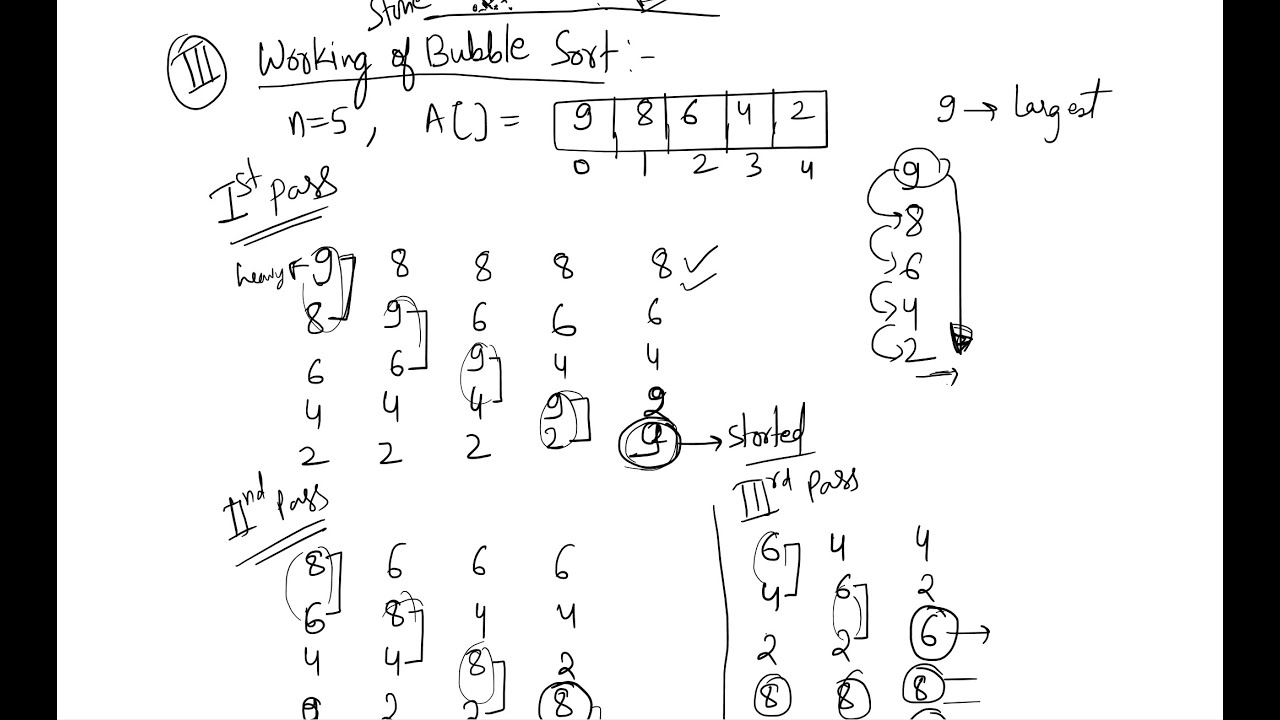 Store
III Working of Bubble Sort :-
n=5 , A[] = 9 8 6 4 2
0 1 2 3 4
9 → largest
9
8
6
4
2
Ist pass
heavy ← 9 8 8 8 8
8 9 6 6 6
6 6 9 4 4
4 4 4 9 2
2 2 2 2 9 → storted
IInd pass
8 6 6 6
6 8 4 4
4 4 8 2
2 2 8
IIIrd pass
6 4 4
4 6 2
2 2 6 →
8 8 8